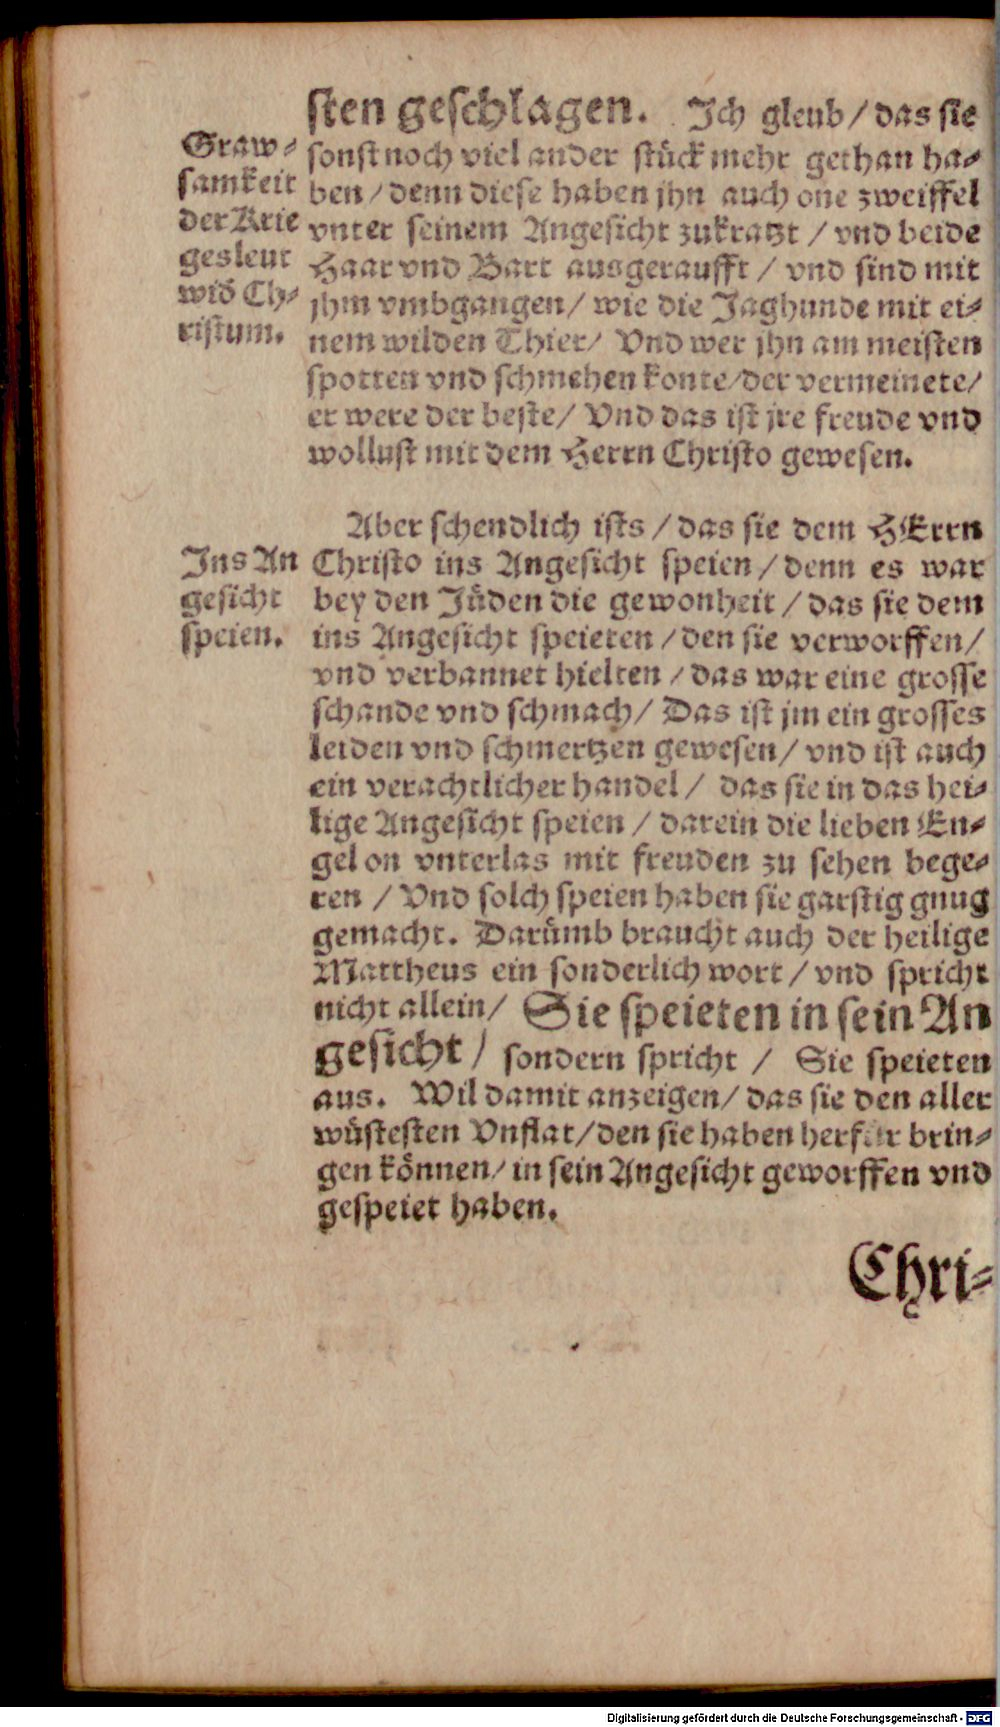 sten geschlagen. Ich gleub / das sie
Graw-
samkeit
der Krie
gesleut
wid Ch-
ristum.
sonst noch viel ander stück mehr gethan ha-
ben / denn diese haben jhn auch one zweiffel
vnter seinem Angesicht zukratzt / vnd beide
Haar vnd Bart ausgeraufft / vnd sind mit
jhm vmbgangen / wie die Jaghunde mit ei-
nem wilden Thier / Vnd wer jhn am meisten
spotten vnd schmehen konte / der vermeinete /
er were der beste / Vnd das ist jre freude vnd
wollust mit dem Herrn Christo gewesen.
Aber schendlich ists / das sie dem HErrn
Ins An
gesicht
speien.
Christo ins Angesicht speien / denn es war
bey den Jüden die gewonheit / das sie dem
ins Angesicht speieten / den sie verworffen /
vnd verbannet hielten / das war eine grosse
schande vnd schmach / Das ist jm ein grosses
leiden vnd schmertzen gewesen / vnd ist auch
ein verachtlicher handel / das sie in das hei-
lige Angesicht speien / darein die lieben En-
gel on vnterlas mit freuden zu sehen bege-
ren / Vnd solch speien haben sie garstig gnug
gemacht. Darümb braucht auch der heilige
Mattheus ein sonderlich wort / vnd spricht
nicht allein / Sie speieten in sein An
gesicht / sondern spricht / Sie speieten
aus. Wil damit anzeigen / das sie den aller
wüstesten Vnflat / den sie haben herfür brin-
gen können / in sein Angesicht geworffen vnd
gespeiet haben.
Chri-
Digitalisierung gefördert durch die Deutsche Forschungsgemeinschaft - DFG